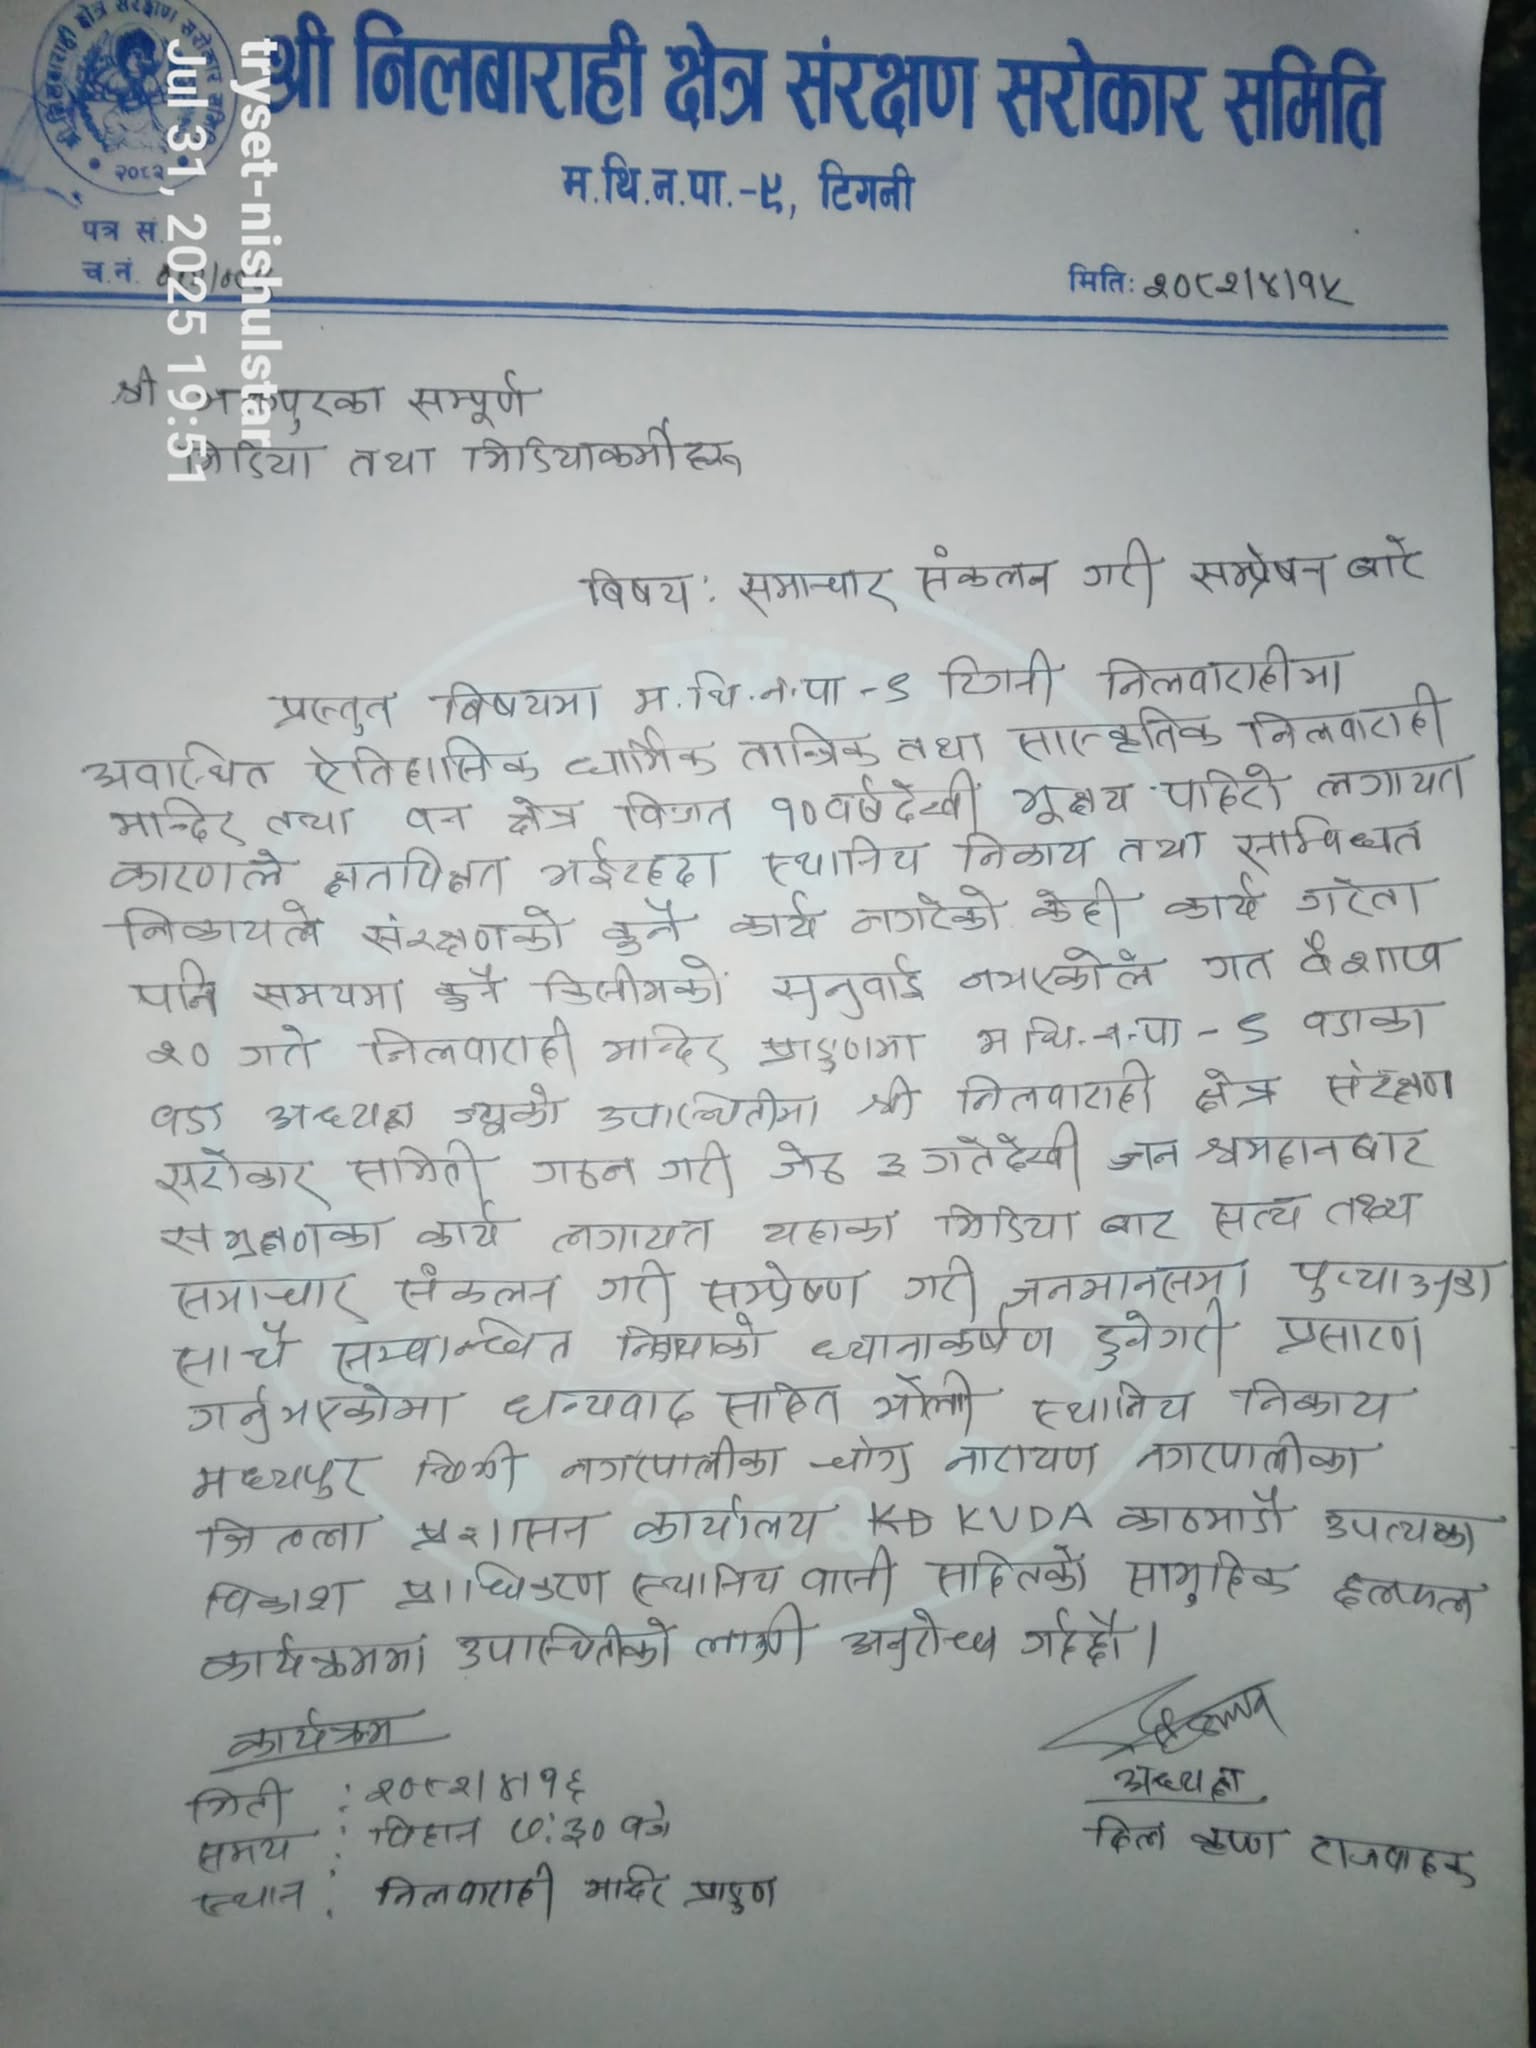 श्री निलबाराही क्षेत्र संरक्षण सरोकार समिति
म.थि.न.पा.-९, टिगनी
२०८२
पत्र सं.
च.नं.
मिति: २०८२।४।१५
tryset-nishulstar
Jul 31, 2025 19:51
श्री भक्तपुरका सम्पूर्ण
मिडिया तथा मिडियाकर्मीहरू
बिषय: समाचार संकलन गरी सम्प्रेषन बारे
प्रस्तुत बिषयमा म.थि.न.पा-९ टिगनी निलवाराहीमा
अवास्थित ऐतिहासिक धार्मिक तान्त्रिक तथा सास्कृतिक निलवाराही
मान्दिर तथा वन क्षेत्र विगत १० वर्षदेखी भूक्षय पहिरो लगायत
कारणले क्षतविक्षत भईरहदा स्थानिय निकाय तथा साम्बिधत
निकायले संरक्षणको कुनै कार्य नगरेको केही कार्य गरेता
पनि समयमा कुनै किसीमको सुनुवाई नभएकोले गत बैशाख
२० गते निलवाराही मान्दिर प्राङ्गणमा म थि.न.पा-९ वडाका
वडा अध्यक्ष ज्यूको उपास्थितीमा श्री निलवाराही क्षेत्र संरक्षण
सरोकार समिती गठन गरी जेठ ३ गतेदेखी जन श्रमदानबाट
संरक्षणका कार्य लगायत यहाका मिडिया बाट सत्य तथ्य
समाचार संकलन गरी सम्प्रेष्ण गरी जनमानसमा पुर्‍याउनुका
साथै सम्वान्धित निकायको ध्यानाकर्षण हुनेगरी प्रसारण
गर्नुभएकोमा धन्यवाद साहित भोली स्थानिय निकाय
मध्यपुर थिमी नगरपालीका चांगु नारायण नगरपालीका
जिल्ला प्रशासन कार्यालय KD KVDA काठमाडौ उपत्यका
विकाश प्राधिकरण स्थानिय वासी सहितको सामुहिक छलफल
कार्यक्रममा उपास्थितीको लागी अनुरोध गर्दछौ।
कार्यक्रम
मिती : २०८२।४।१६
समय : विहान ७:३० बजे
स्थान : निलवाराही मान्दिर प्राङ्गण
अध्यक्ष
दिल कृष्ण राजवाहक